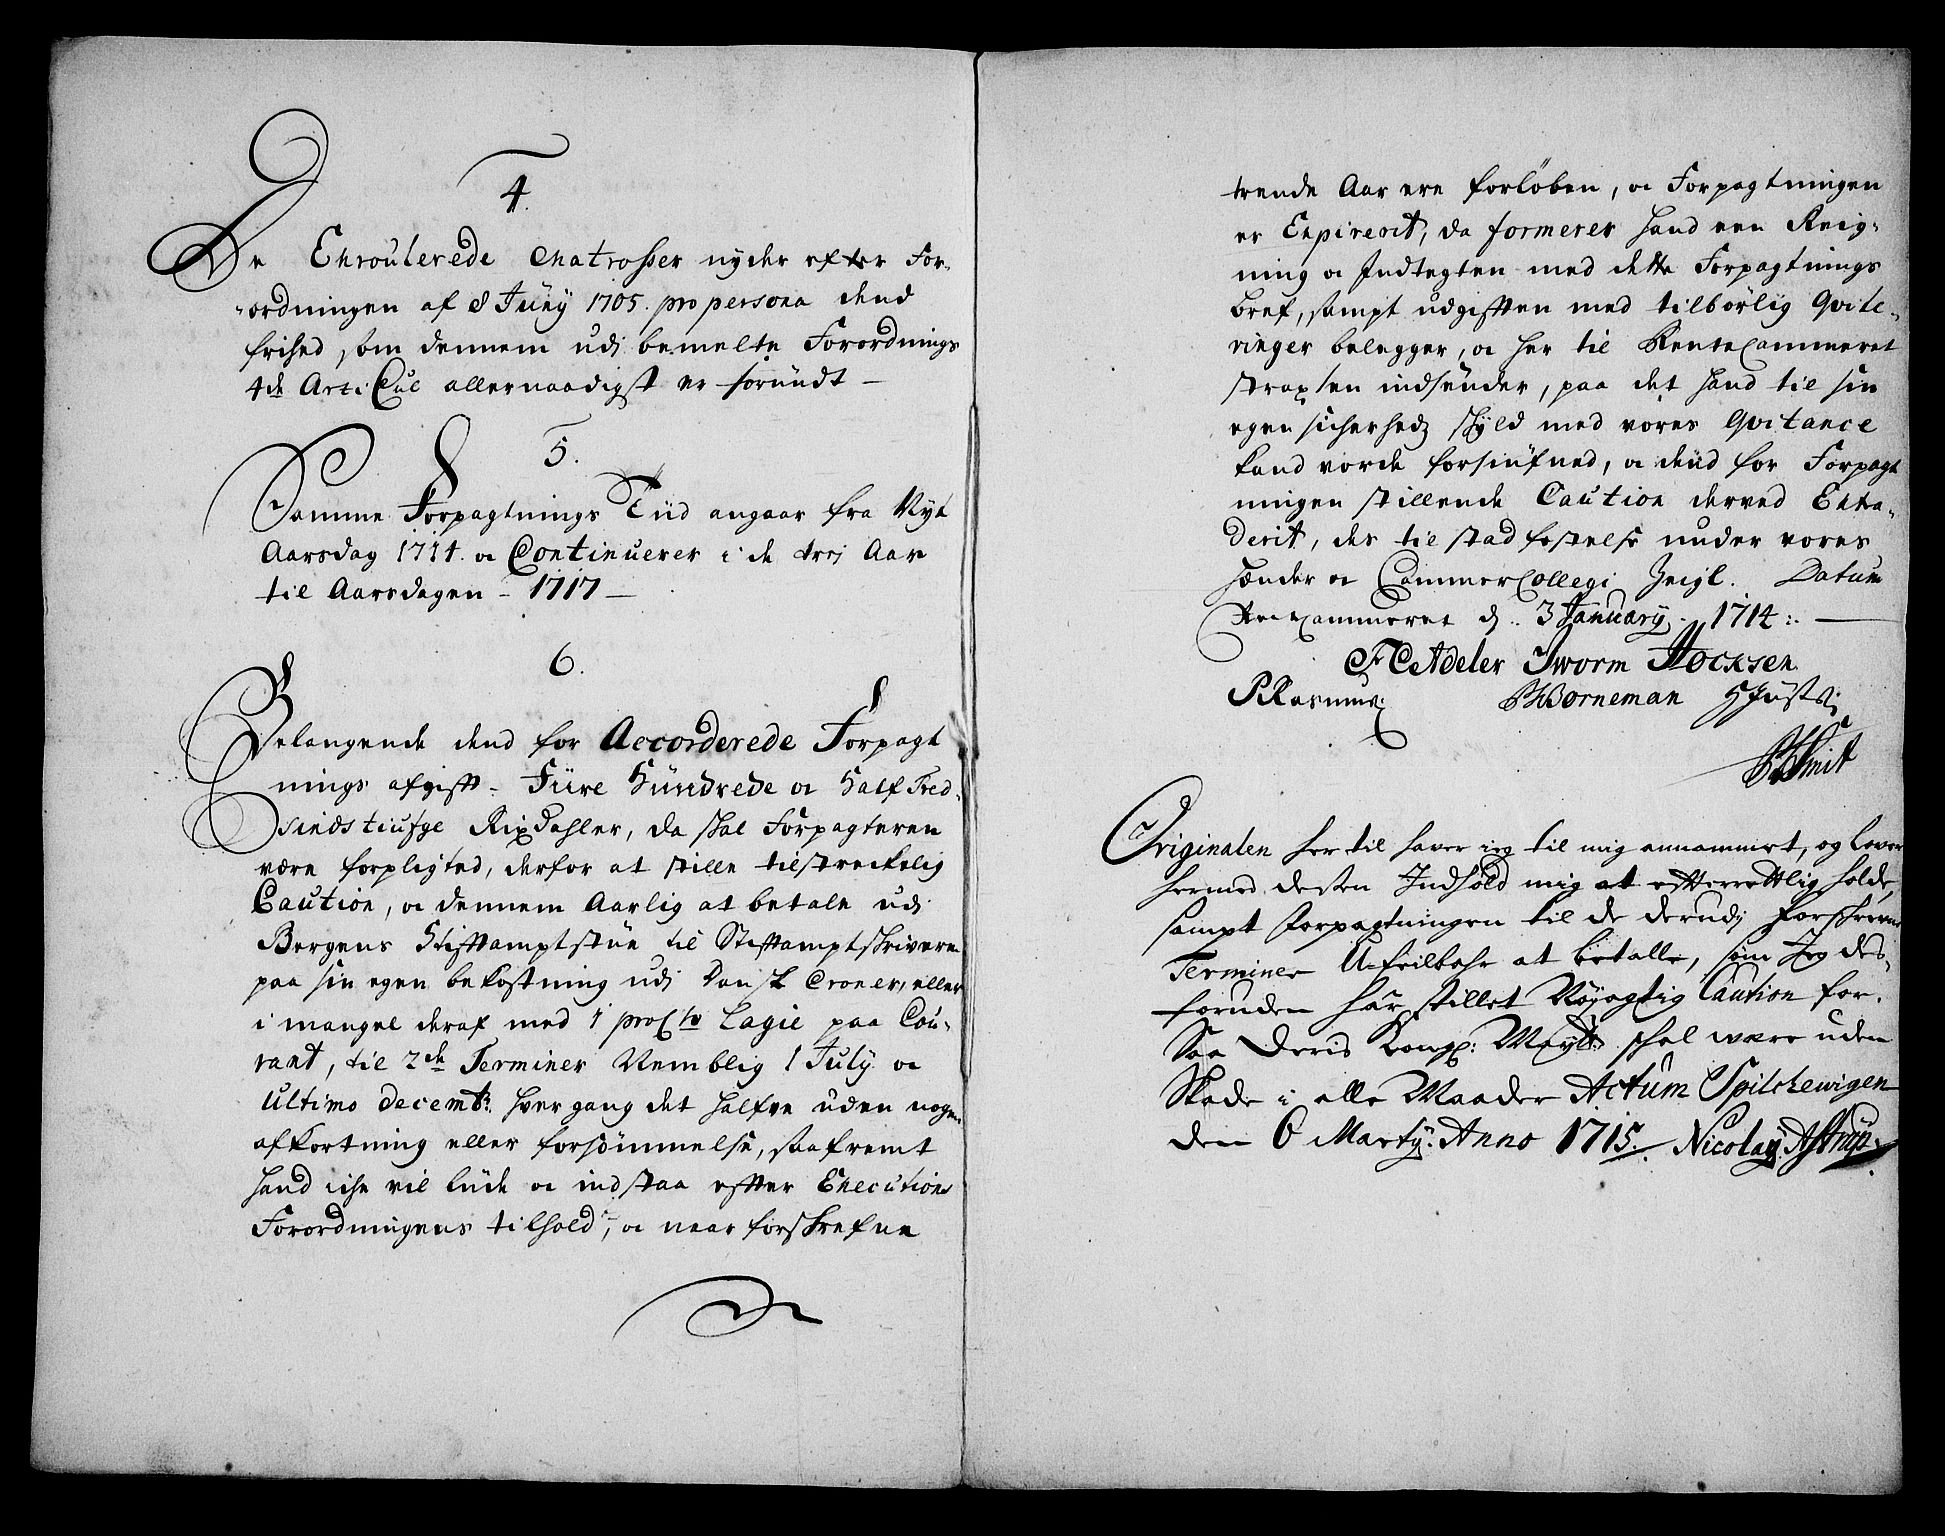 4.
De Enroulerede Matrosser nyder efter For-
ordningen af 8 Juny 1705. pro persona dend
frihed, som dennem udj bemelte Forordnings
4de Articul allernaadigst er forundt
5.
Samme Forpagtnings Tiid angaar fra Nyt
Aarsdag 1714. oc Continuerer i de trej Aar
til Aarsdagen - 1717
6.
Belangende dend for Accorderede Forpagt
nings afgifft - Fiire Hundrede oc Half Tred-
sindstiufge Rixdahler, da skal Forpagteren
være forpligted, derfor at stille tilstreckelig
Caution, oc dennem Aarlig at betale udj
Bergens Stifftamptstue til Stifftamptskriveren
paa sin egen bekostning udj Dansk Croner, eller
i mangel deraf med 1 proCto Lagie paa Cou-
rant, til 2de Terminer Nemblig 1 July oc
ultimo Decembr: hver gang det halfve uden nogen
afkortning eller forsømmelse, saafremt
hand iche vil liide oc indstaa effter Executions
Forordningens tilhold, oc naar forskrefne
trende Aar ere forløben, oc Forpagtningen
er Expirerit, da formerer hand een Reig-
ning oc Indtegten med dette Forpagtnings
bref, sampt udgifften med tilbørlig Qvite-
ringer belegger, oc her til RenteCammeret
straxsen indsender, paa det hand til sin
egen sicherhedz skyld med vores Qvitance
kand vorde forsiufned, oc dend for Forpagt
ningen stillende Caution derved Extra-
derit, des til stadfestelse under vores
hænder oc CammerCollegi Zeigl. Datum
RenteCammeret d. 3 January. 1714
FAdeler JWorm Hocksen
PRasmus: BWorneman HJust:
Smit
Originalen her til haver ieg til mig annammet, og Lover
hermed desten Indhold mig at efterrettlig holde,
sampt Forpagtningen til de derudj forskrevne
Terminer U-feilbahr at betalle, som Jeg des-
foruden har stillet Nøyagtig Caution for.
Saa Deris Kongl: Mayts: skal wære uden
Skade i alle Maader Actum Spilchewigen
den 6 Marty: Anno 1715. Nicolay Astrup